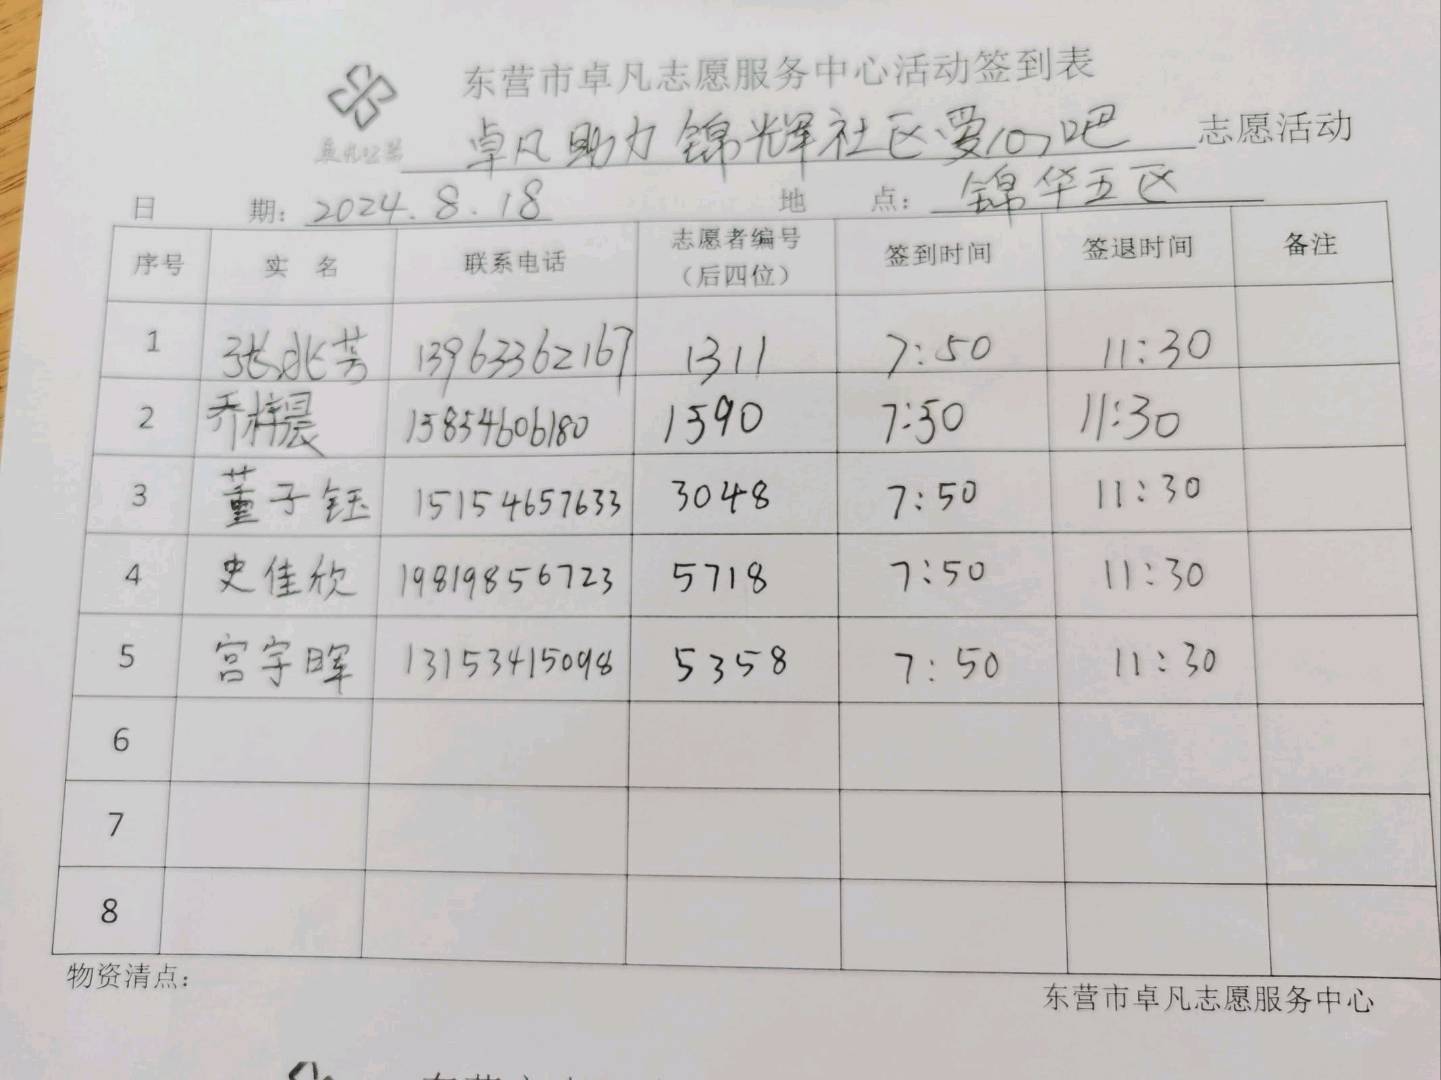 东营市卓凡志愿服务中心活动签到表
卓凡助力锦辉社区爱心吧 志愿活动
日 期：2024.8.18 地 点：锦华五区
序号 实 名 联系电话 志愿者编号（后四位） 签到时间 签退时间 备注
1 张兆芳 13963362167 1311 7:50 11:30
2 乔梓晨 15854606180 1590 7:50 11:30
3 董子钰 15154657633 3048 7:50 11:30
4 史佳欣 19819856723 5718 7:50 11:30
5 宫宇晖 13153415098 5358 7:50 11:30
6
7
8
物资清点：
东营市卓凡志愿服务中心